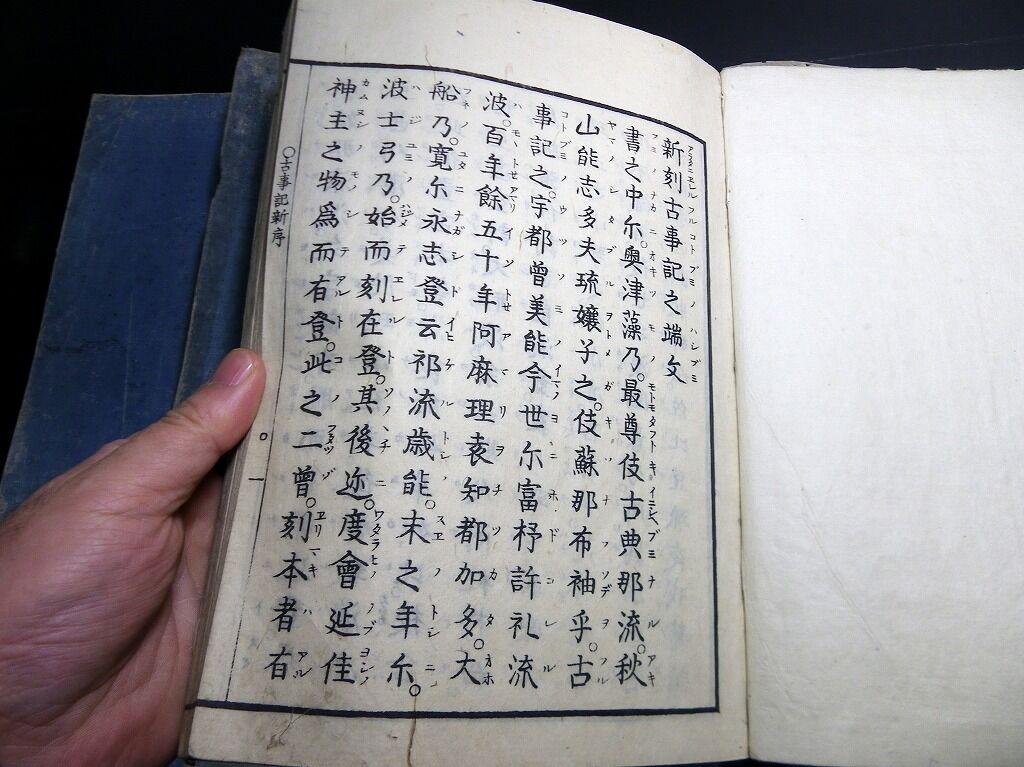 新刻古事記之端文
書之中尓。奥津藻乃。最尊伎古典那流。秋
山能志多夫琉孃子之。伎蘇那布袖乎。古
事記之。宇都曾美能今世尓富杼許礼流
波。百年餘五十年阿麻理袁知都加多。大
船乃。寛尓永志登云祁流歳能。末之年尓。
波士弓乃。始而刻在登。其後迩。度會延佳
神主之物爲而有登。此之二曾。刻本者有
○古事記新序
○一